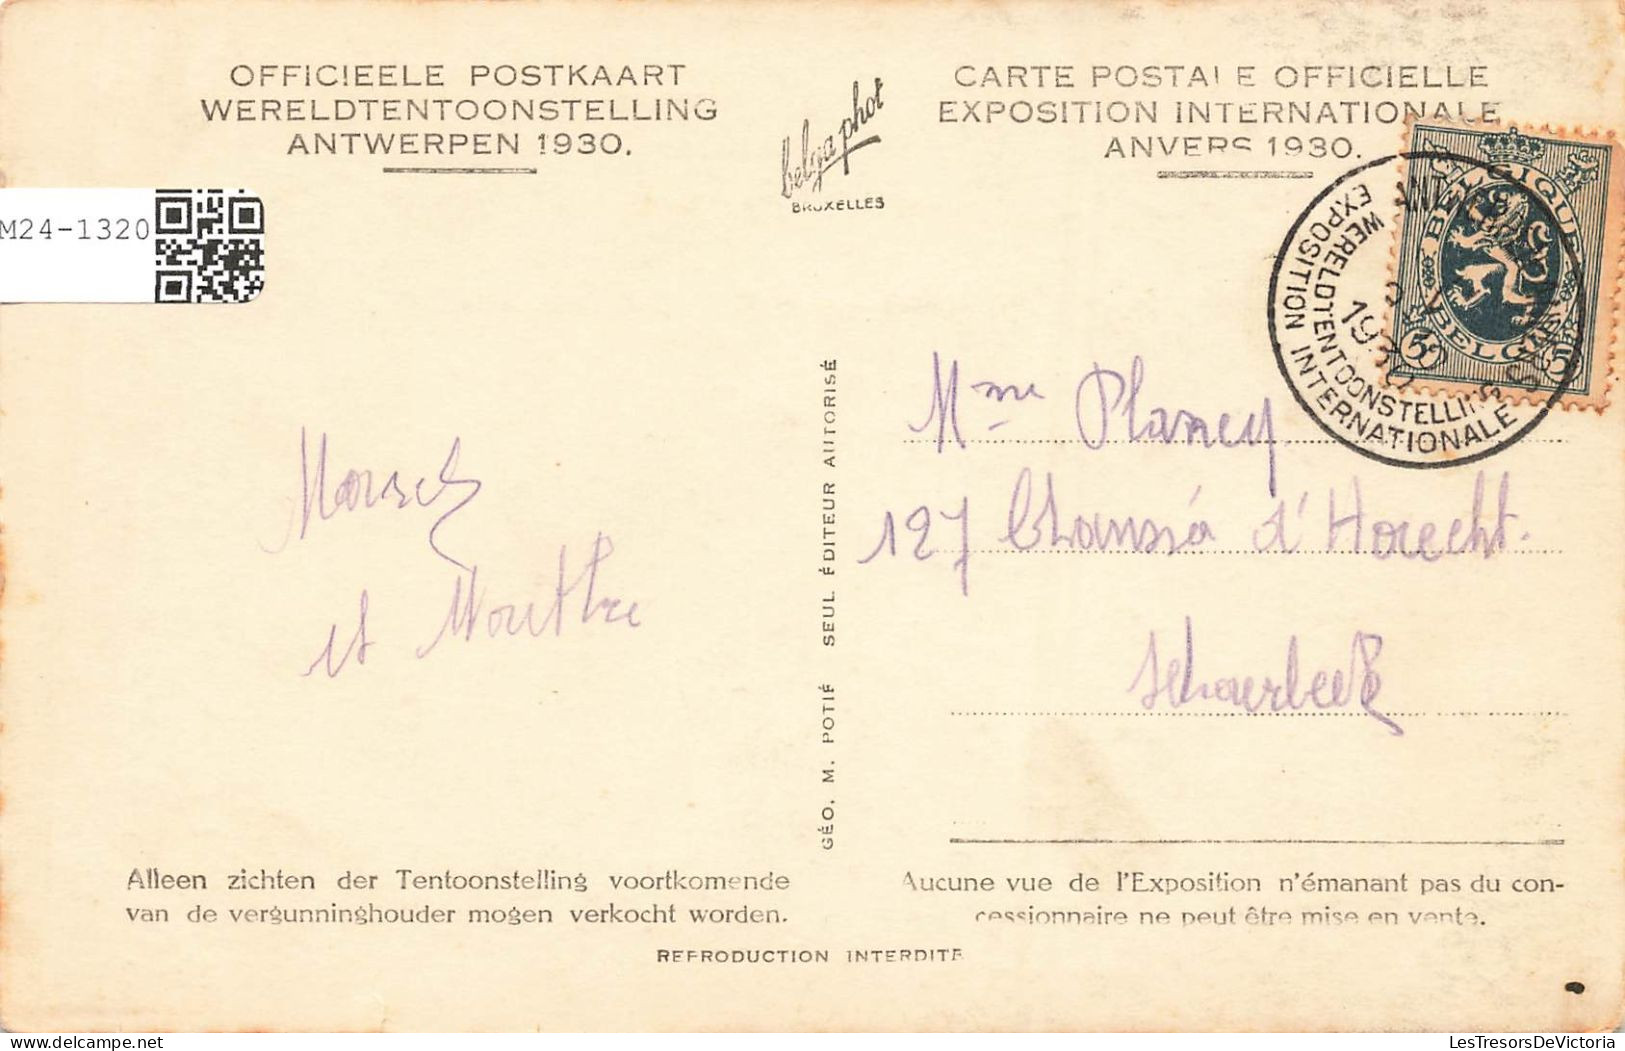 OFFICIEELE POSTKAART
WERELDTENTOONSTELLING
ANTWERPEN 1930.
belgaphot
BRUXELLES
CARTE POSTALE OFFICIELLE
EXPOSITION INTERNATIONALE
ANVERS 1930.
M24-1320
BELGIQUE
BELGIË
5 5
WERELDTENTOONSTELLING
EXPOSITION INTERNATIONALE
1930
GÉO. M. POTIÉ SEUL ÉDITEUR AUTORISÉ
Marcel
et Marthe
Mme Plancy
127 Chaussé d'Haecht.
Schaerbeek
Alleen zichten der Tentoonstelling voortkomende
van de vergunninghouder mogen verkocht worden.
Aucune vue de l'Exposition n'émanant pas du con-
cessionnaire ne peut être mise en vente.
REPRODUCTION INTERDITE
LesTresorsDeVictoria
www.delcampe.net